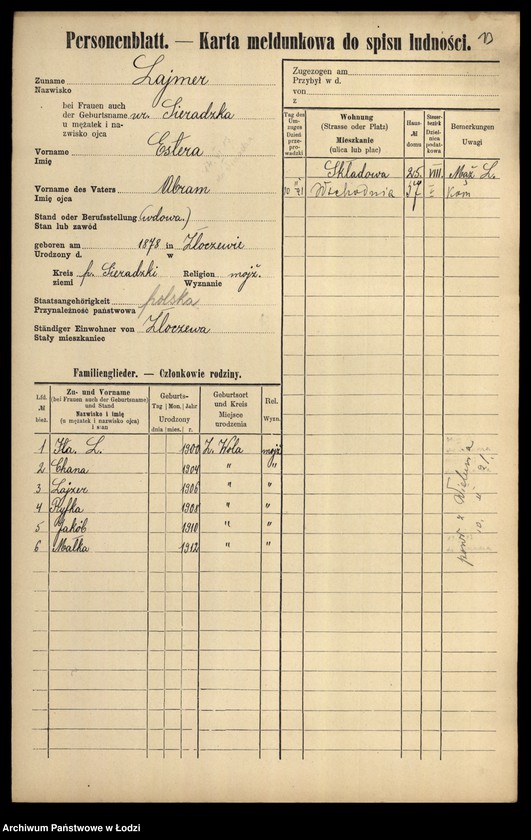 Personenblatt. — Karta meldunkowa do spisu ludności.
Zuname
Nazwisko
Lajmer
bei Frauen auch
der Geburtsname
u mężatek i na-
zwisko ojca
ur. Sieradzka
Vorname
Imię
Estera
Vorname des Vaters
Imię ojca
Abram
Stand oder Berufsstellung
Stan lub zawód
(wdowa.)
geboren am 1878 in Złoczewie
Urodzony d. w
Kreis p. Sieradzki Religion mojż.
ziemi Wyznanie
Staatsangehörigkeit
Przynależność państwowa
polska
Ständiger Einwohner von
Stały mieszkaniec
Złoczewa
Zugezogen am
Przybył w d.
von
z
Tag des
Um-
zuges
Dzień
prze-
prowadzki
Wohnung
(Strasse oder Platz)
Mieszkanie
(ulica lub plac)
Haus-
№
domu
Steuer-
bezirk
Dzielnica
podat-
kowa
Bemerkungen
Uwagi
Składowa 25. VIII. Mąż L.
Wschodnia 57
Familienglieder. — Członkowie rodziny.
Lfd.
№
bież.
Zu- und Vorname
(bei Frauen auch der Geburtsname)
und Stand
Nazwisko i imię
(u mężatek i nazwisko ojca)
i stan
Geburts-
Tag Mon. Jahr
Urodzony
dnia mies. r.
Geburtsort
und Kreis
Miejsce
urodzenia
Rel.
Wyzn.
1 L. 1900 Z. Wola mojż
2 Chana 1904 " "
3 Lajzer 1906 " "
4 Ryfka 1908 " "
5 Jakób 1910 " "
6 Małka 1912 " "
powr z Wielunia
10. 11. 21.
Archiwum Państwowe w Łodzi